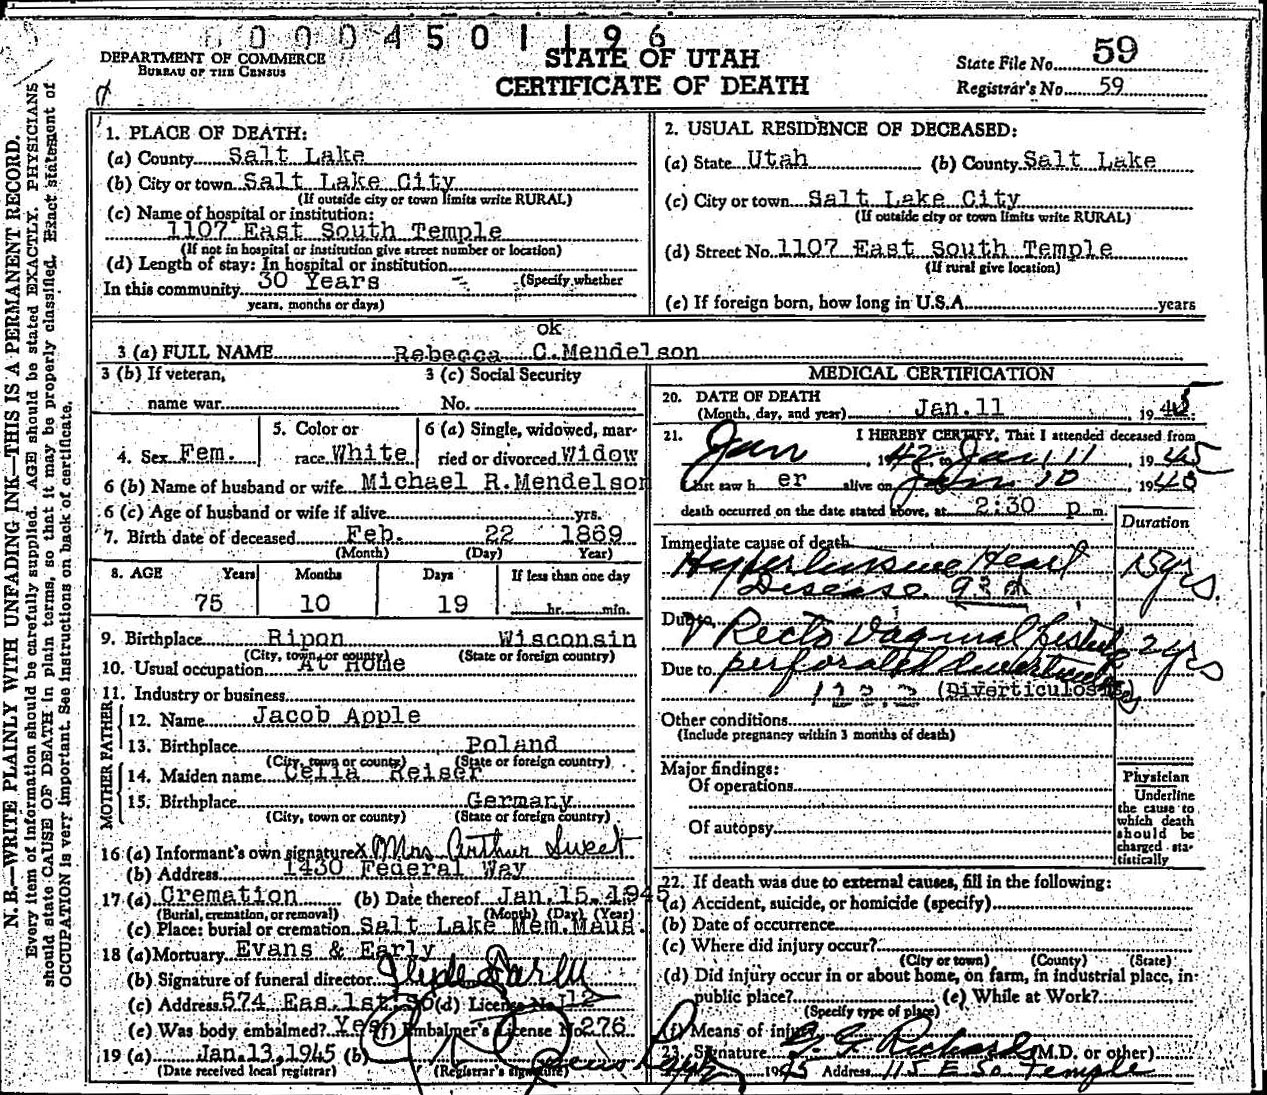 0004501196
DEPARTMENT OF COMMERCE
BUREAU OF THE CENSUS
STATE OF UTAH
CERTIFICATE OF DEATH
State File No. 59
Registrar's No. 59
N. B.—WRITE PLAINLY WITH UNFADING INK—THIS IS A PERMANENT RECORD.
Every item of information should be carefully supplied. AGE should be stated EXACTLY. PHYSICIANS
should state CAUSE OF DEATH in plain terms, so that it may be properly classified. Exact statement of
OCCUPATION is very important. See instructions on back of certificate.
1. PLACE OF DEATH:
(a) County Salt Lake
(b) City or town Salt Lake City
(If outside city or town limits write RURAL)
(c) Name of hospital or institution:
1107 East South Temple
(If not in hospital or institution give street number or location)
(d) Length of stay: In hospital or institution
(Specify whether
In this community 30 Years
years, months or days)
2. USUAL RESIDENCE OF DECEASED:
(a) State Utah (b) County Salt Lake
(c) City or town Salt Lake City
(If outside city or town limits write RURAL)
(d) Street No. 1107 East South Temple
(If rural give location)
(e) If foreign born, how long in U.S.A. years
ok
3 (a) FULL NAME Rebecca C. Mendelson
3 (b) If veteran,
name war
3 (c) Social Security
No.
4. Sex Fem.
5. Color or
race White
6 (a) Single, widowed, mar-
ried or divorced Widow
6 (b) Name of husband or wife Michael R. Mendelson
6 (c) Age of husband or wife if alive yrs.
7. Birth date of deceased Feb. 22 1869
(Month) (Day) Year)
8. AGE Years Months Days If less than one day
75 10 19 hr. min.
9. Birthplace Ripon Wisconsin
(City, town, or county) (State or foreign country)
10. Usual occupation At Home
11. Industry or business
FATHER
12. Name Jacob Apple
13. Birthplace Poland
(City, town or county) (State or foreign country)
MOTHER
14. Maiden name Celia Reiser
15. Birthplace Germany
(City, town or county) (State or foreign country)
16 (a) Informant's own signature x Mrs Arthur Sweet
(b) Address 1430 Federal Way
17 (a) Cremation (b) Date thereof Jan. 15, 1945
(Burial, cremation, or removal) (Month) (Day) (Year)
(c) Place: burial or cremation Salt Lake Mem. Maus.
18 (a) Mortuary Evans & Early
(b) Signature of funeral director Clyde Early
(c) Address 574 Eas. 1st So (d) License No. 112
(e) Was body embalmed? Yes (f) Embalmer's License No. 276
19 (a) Jan. 13, 1945 (b)
(Date received local registrar) (Registrar's signature)
MEDICAL CERTIFICATION
20. DATE OF DEATH
(Month, day, and year) Jan. 11 1945
21. I HEREBY CERTIFY, That I attended deceased from
Jan, 1942, to Jan, 11 1945
last saw her alive on Jan 10 1945
death occurred on the date stated above, at 2:30 p m.
Duration
Immediate cause of death
Hypertensive Heart 15 yrs.
Disease 93d
Due to
Recto Vaginal fistula 2 yrs
Due to perforated
(Diverticulosis)
Other conditions
(Include pregnancy within 3 months of death)
Major findings:
Of operations
Of autopsy
Physician
Underline
the cause to
which death
should be
charged sta-
tistically
22. If death was due to external causes, fill in the following:
(a) Accident, suicide, or homicide (specify)
(b) Date of occurrence
(c) Where did injury occur?
(City or town) (County) (State)
(d) Did injury occur in or about home, on farm, in industrial place, in
public place? (e) While at Work?
(Specify type of place)
(f) Means of injury
23. Signature G. G. Richards (M.D. or other)
1945 Address 115 E So. Temple